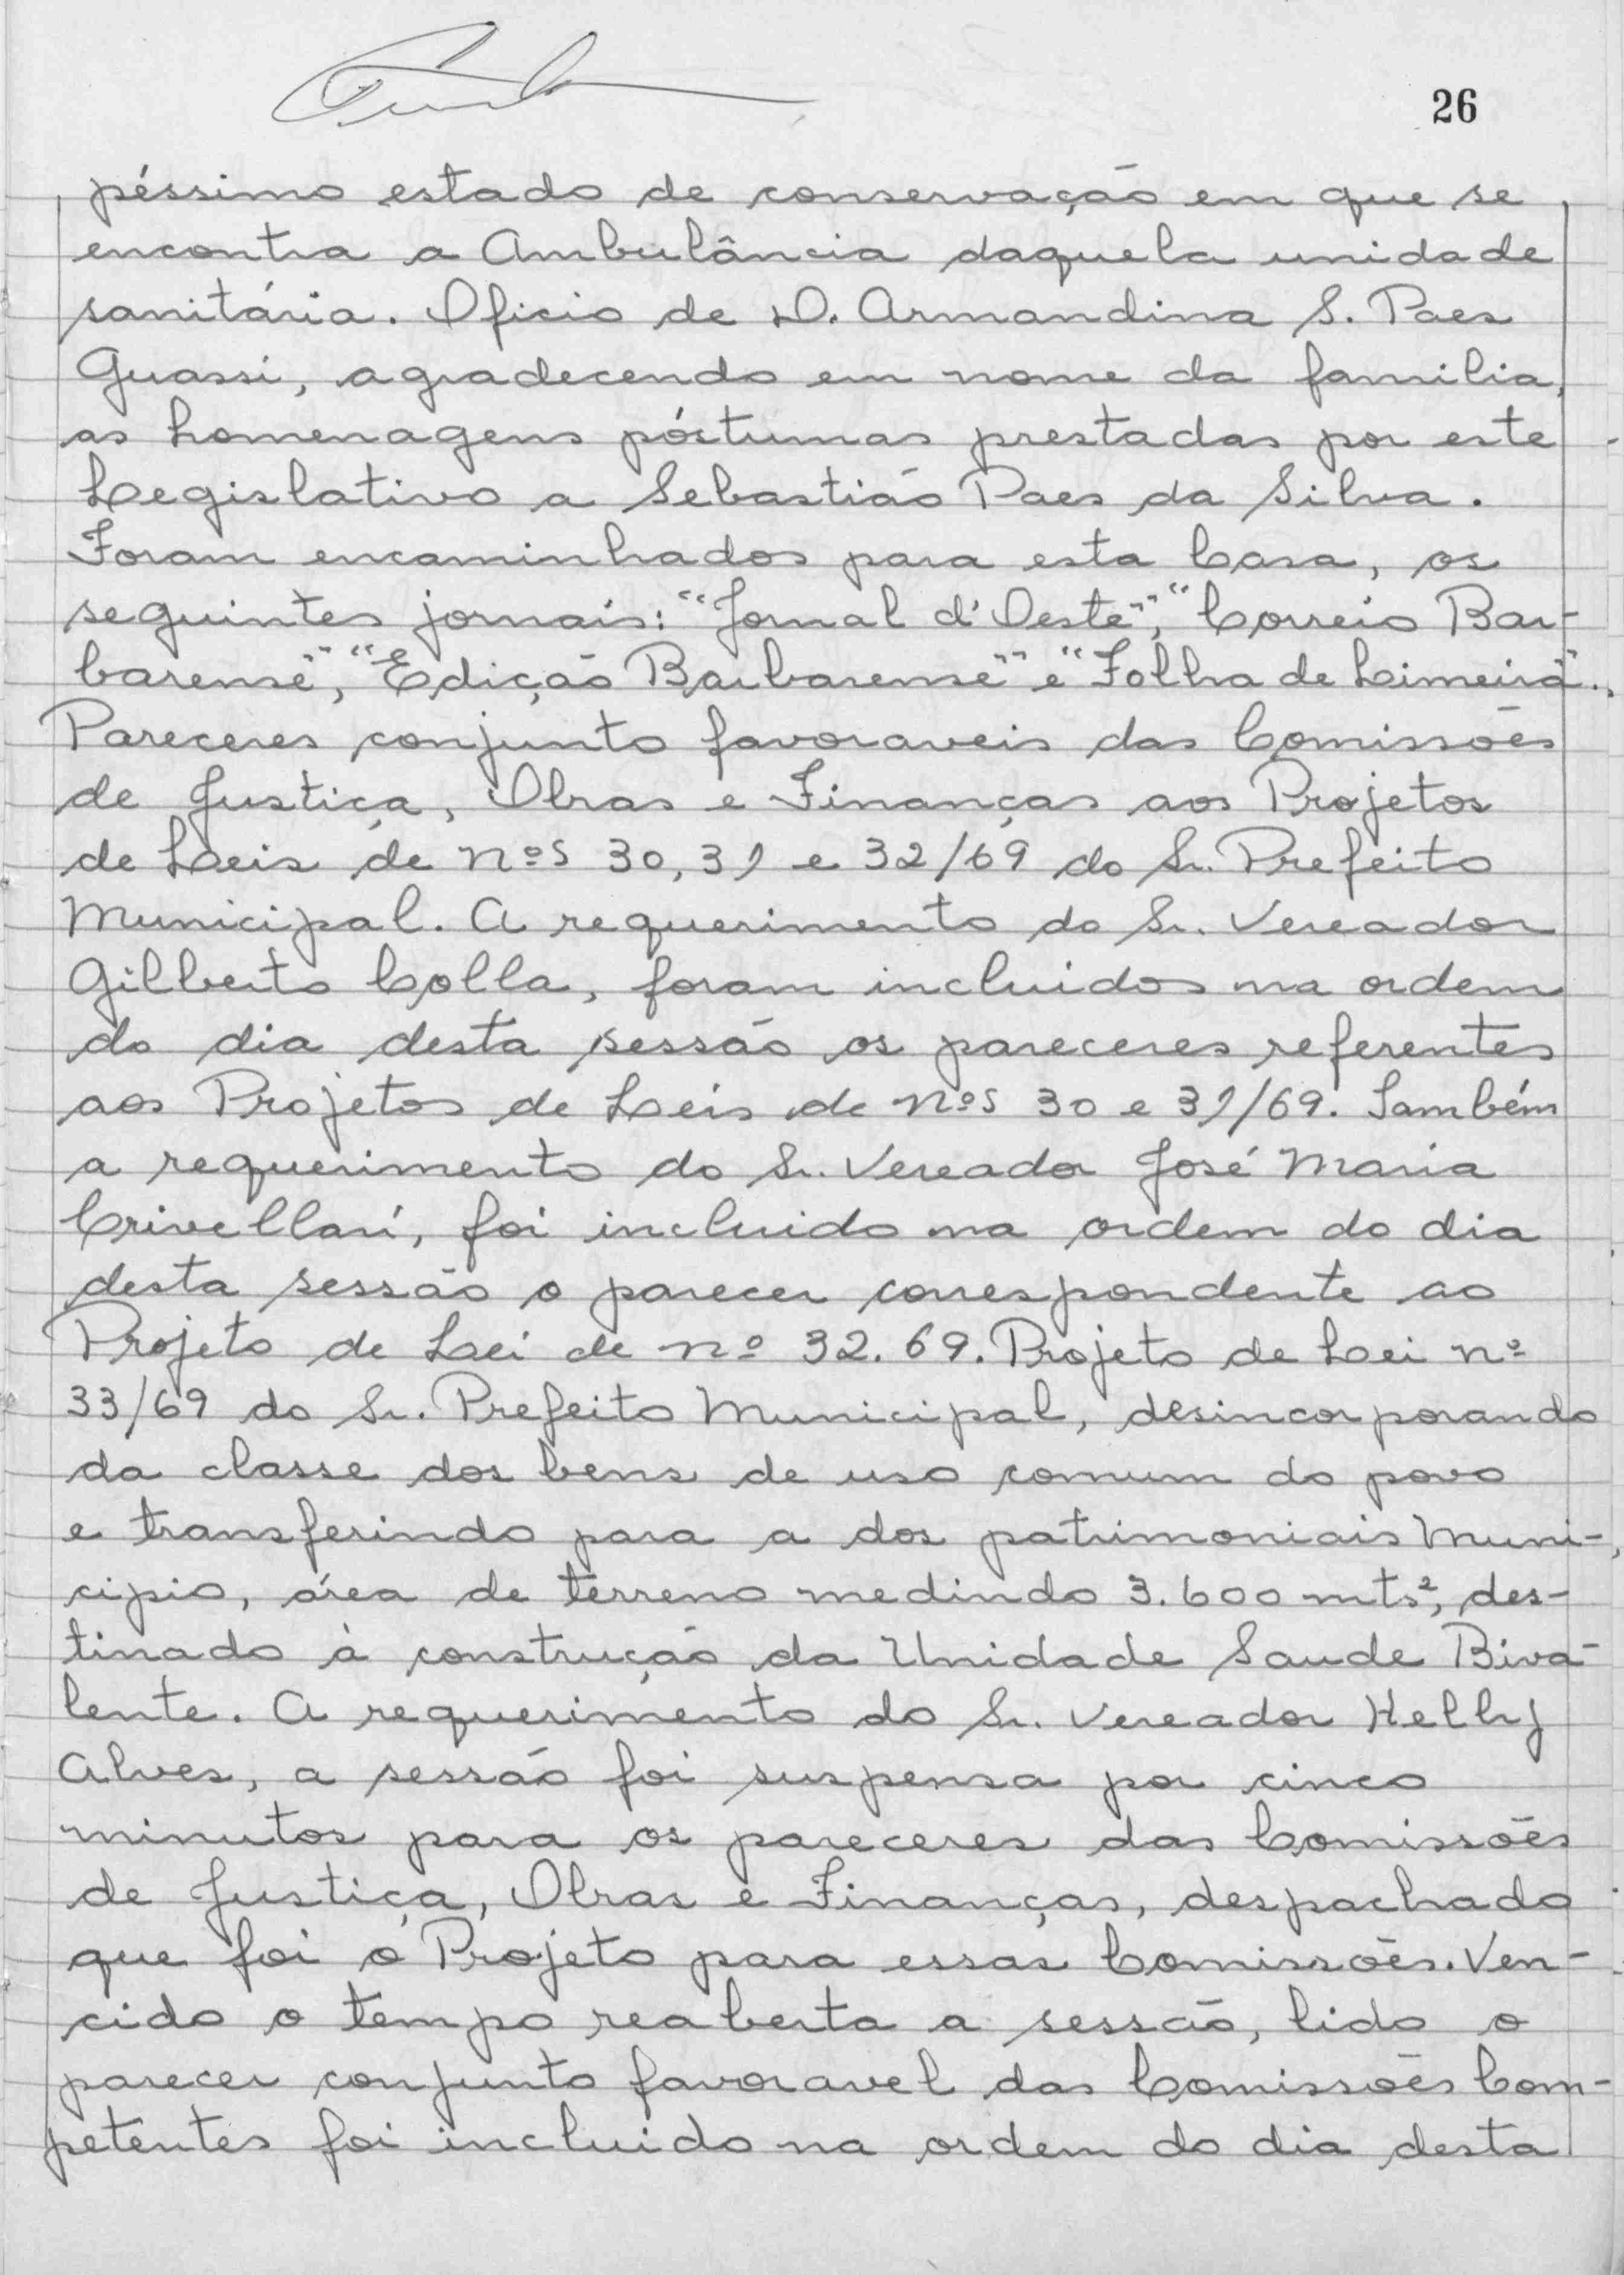 26
péssimo estado de conservação em que se
encontra a Ambulância daquela unidade
sanitária. Oficio de D. Armandina S. Paes
Guassi, agradecendo em nome da familia,
as homenagens póstumas prestadas por este
Legislativo a Sebastião Paes da Silva.
Foram encaminhados para esta Casa, os
seguintes jornais: "Jornal d'Oeste", "Correio Bar-
barense", "Edição Barbarense" e "Folha de Limeira".
Pareceres conjunto favoraveis das Comissões
de Justiça, Obras e Finanças aos Projetos
de Leis de nºs 30, 31 e 32/69 do Sr. Prefeito
Municipal. A requerimento do Sr. Vereador
Gilberto Colla, foram incluidos na ordem
do dia desta sessão os pareceres referentes
aos Projetos de Leis de nºs 30 e 31/69. Também
a requerimento do Sr. Vereador José Maria
Crivellari, foi incluido na ordem do dia
desta sessão o parecer correspondente ao
Projeto de Lei de nº 32.69. Projeto de Lei nº
33/69 do Sr. Prefeito Municipal, desincorporando
da classe dos bens de uso comum do povo
e transferindo para a dos patrimoniais Muni-
cipio, área de terreno medindo 3.600 mts², des-
tinado à construção da Unidade Saude Biva-
lente. A requerimento do Sr. Vereador Kelly
Alves, a sessão foi suspensa por cinco
minutos para os pareceres das Comissões
de Justiça, Obras e Finanças, despachado
que foi o Projeto para essas Comissões. Ven-
cido o tempo reaberta a sessão, lido o
parecer conjunto favoravel das Comissões Com-
petentes foi incluido na ordem do dia desta